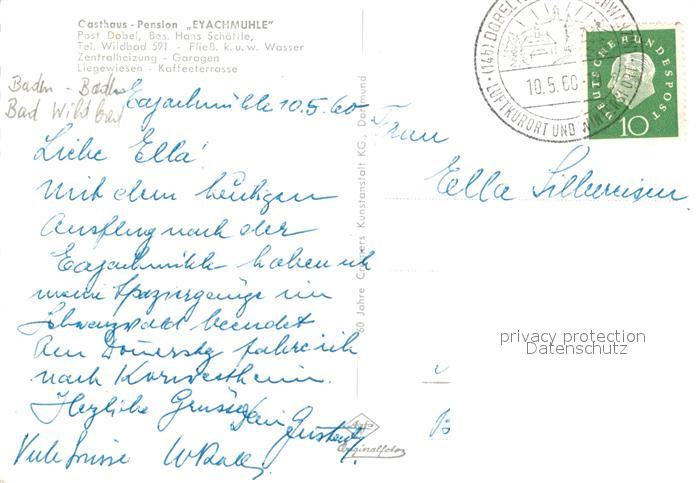 Gasthaus - Pension „EYACHMÜHLE"
Post Dobel, Bes. Hans Schöttle,
Tel. Wildbad 591 - Fließ. k. u. w. Wasser
Zentralheizung - Garagen
Liegewiesen - Kaffeeterrasse
Baden - Baden
Bad Wildbad
Eyachmühle 10.5.60
Liebe Ella!
Mit dem heutigen
Ausflug nach der
Eyachmühle haben ich
meine Spaziergänge im
Schwarzwald beendet
Am Donerstg fahre ich
nach Kornwestheim.
Herzliche Grüsse Dein
Viele Grüsse
60 Jahre Cramers Kunstanstalt KG., Dortmund
Frau
Ella
(14b) DOBEL
10.5.60
LUFTKURORT UND
DEUTSCHE BUNDESPOST
10
privacy protection
Datenschutz
Agfa
Originalfoto